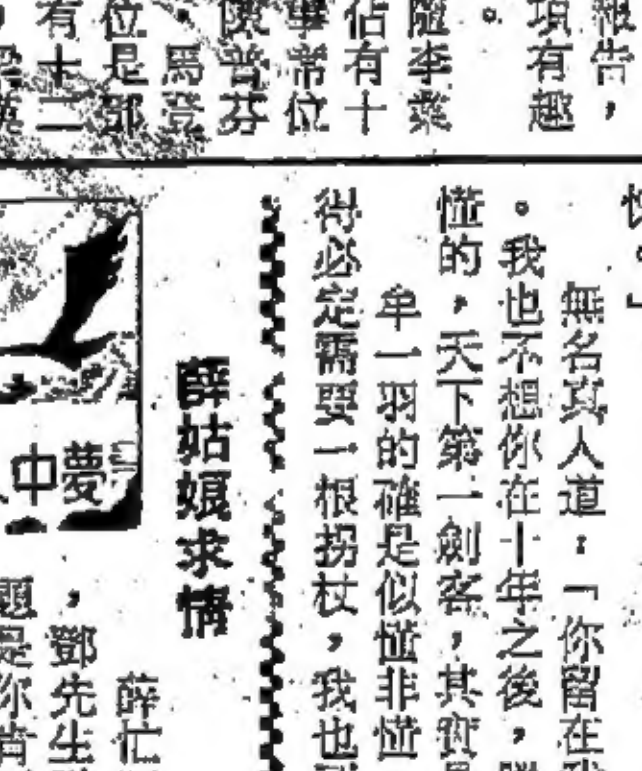 報告，
項有趣
。
隨李
佔有十
畢常位
陳普芬
，馬登
位是鄧
有十二
恢。」
無名真人道：「你留在我
。我也不想你在十年之後，
懂的，天下第一劍客，其實
牟一羽的確是似懂非懂
得必定需要一根拐杖，我也
薛姑娘求情
薛忙
，鄧先生
題是你肯
中夢